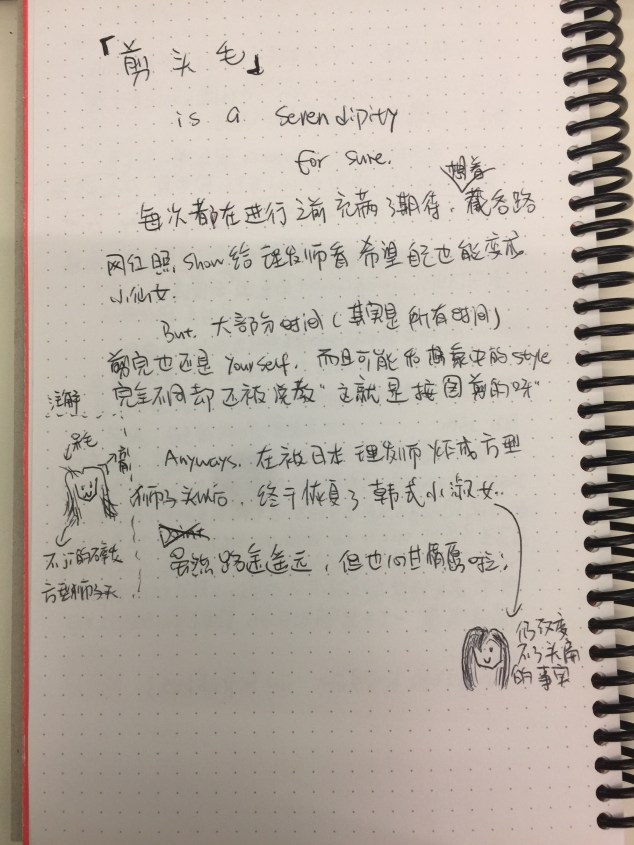 「剪头毛」
is a Serendipity
for sure.
想着
每次都在进行之前充满了期待，藏各路
网红照，Show给理发师看 希望自己也能变成
小仙女.
But. 大部分时间（其实是所有时间）
剪完也还是 Yourself. 而且可能和想象中的style
完全不同却还被说教"这就是按图剪的呀"
注解
Anyways. 在被日本理发师炸成方型
狮子头以后，终于恢复了韩式小淑女..
呆毛
虽然路途遥远，但也心甘情愿啦；
方型狮子头
仍改变
不了头扁
的事实